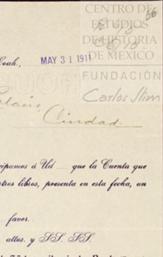 CENTRO DE
ESTUDIOS
DE HISTORIA
DE MÉXICO
FUNDACIÓN
Carlos Slim
Coah,
MAY 31 1911
Palacio
Ciudad
cipamos á Ud que la Cuenta que
stros libros, presenta en esta fecha, un
favor.
attos. y SS. SS.